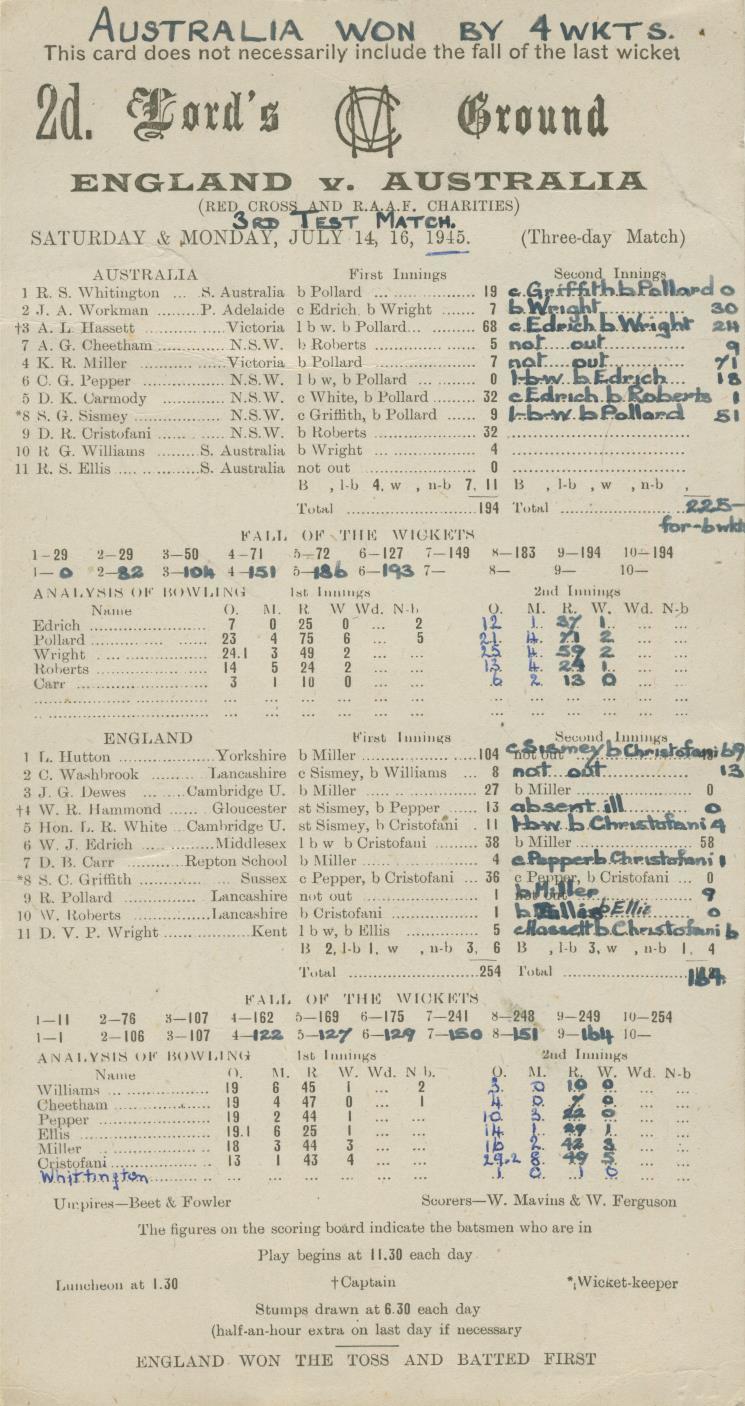 AUSTRALIA WON BY 4 WKTS.
This card does not necessarily include the fall of the last wicket
2d. Lord's MCC Ground
ENGLAND v. AUSTRALIA
(RED CROSS AND R.A.A.F. CHARITIES)
3RD TEST MATCH.
SATURDAY & MONDAY, JULY 14, 16, 1945. (Three-day Match)
AUSTRALIA First Innings Second Innings
1 R. S. Whitington ... S. Australia b Pollard ... 19 c. Griffith b Pollard 0
2 J. A. Workman ... P. Adelaide c Edrich, b Wright 7 b. Wright 30
†3 A. L. Hassett Victoria l b w. b Pollard... 68 c. Edrich b. Wright 24
7 A. G. Cheetham N.S.W. b Roberts 5 not out 9
4 K. R. Miller Victoria b Pollard 7 not out 71
6 C. G. Pepper N.S.W. l b w, b Pollard 0 l-b-w b. Edrich 18
5 D. K. Carmody N.S.W. c White, b Pollard 32 c Edrich b. Roberts 1
*8 S. G. Sismey N.S.W. c Griffith, b Pollard 9 l-b-w b Pollard 51
9 D. R. Cristofani N.S.W. b Roberts 32
10 R G. Williams S. Australia b Wright 4
11 R. S. Ellis S. Australia not out 0
B , l-b 4, w , n-b 7, 11 B , l-b , w , n-b ,
Total 194 Total 225-
for-6wkts
FALL OF THE WICKETS
1-29 2-29 3-50 4-71 5-72 6-127 7-149 8-183 9-194 10-194
1-0 2-82 3-104 4-151 5-186 6-193 7- 8- 9- 10-
ANALYSIS OF BOWLING 1st Innings 2nd Innings
Name O. M. R W Wd. N-b O. M. R. W. Wd. N-b
Edrich 7 0 25 0 ... 2 12 1 37 1 ... ...
Pollard 23 4 75 6 ... 5 21 4 71 2 ... ...
Wright 24.1 3 49 2 ... ... 25 4 59 2 ... ...
Roberts 14 5 24 2 ... ... 13 4 24 1 ... ...
Carr 3 1 10 0 ... ... 6 2 13 0 ... ...
ENGLAND First Innings Second Innings
1 L. Hutton Yorkshire b Miller 104 c Sismey b Christofani 69
2 C. Washbrook Lancashire c Sismey, b Williams 8 not out 13
3 J. G. Dewes Cambridge U. b Miller 27 b Miller 0
†4 W. R. Hammond Gloucester st Sismey, b Pepper 13 absent ill 0
5 Hon. L. R. White Cambridge U. st Sismey, b Cristofani 11 l-bw b Christofani 4
6 W. J. Edrich Middlesex l b w b Cristofani 38 b Miller 58
7 D. B. Carr Repton School b Miller 4 c Pepper b Christofani 1
*8 S. C. Griffith Sussex c Pepper, b Cristofani 36 c Pepper, b Cristofani 0
9 R. Pollard Lancashire not out 1 b Miller 9
10 W. Roberts Lancashire b Cristofani 1 b Ellis 0
11 D. V. P. Wright Kent l b w, b Ellis 5 c Hassett b. Christofani 6
B 2, l-b 1, w , n-b 3, 6 B , l-b 3, w , n-b 1, 4
Total 254 Total 164
FALL OF THE WICKETS
1-11 2-76 3-107 4-162 5-169 6-175 7-241 8-248 9-249 10-254
1-1 2-106 3-107 4-122 5-127 6-129 7-150 8-151 9-164 10-
ANALYSIS OF BOWLING 1st Innings 2nd Innings
Name O. M. R W. Wd. N b. O. M. R. W. Wd. N-b
Williams 19 6 45 1 ... 2 3 0 10 0 ... ...
Cheetham 19 4 47 0 ... 1 4 0 7 0 ... ...
Pepper 19 2 44 1 ... ... 10 3 22 0 ... ...
Ellis 19.1 6 25 1 ... ... 14 1 29 1 ... ...
Miller 18 3 44 3 ... ... 16 2 42 3 ... ...
Cristofani 13 1 43 4 ... ... 29.2 8 49 5 ... ...
Whittington ... 1 0 1 0 ... ...
Umpires—Beet & Fowler Scorers—W. Mavins & W. Ferguson
The figures on the scoring board indicate the batsmen who are in
Play begins at 11.30 each day
Luncheon at 1.30 †Captain *Wicket-keeper
Stumps drawn at 6.30 each day
(half-an-hour extra on last day if necessary
ENGLAND WON THE TOSS AND BATTED FIRST